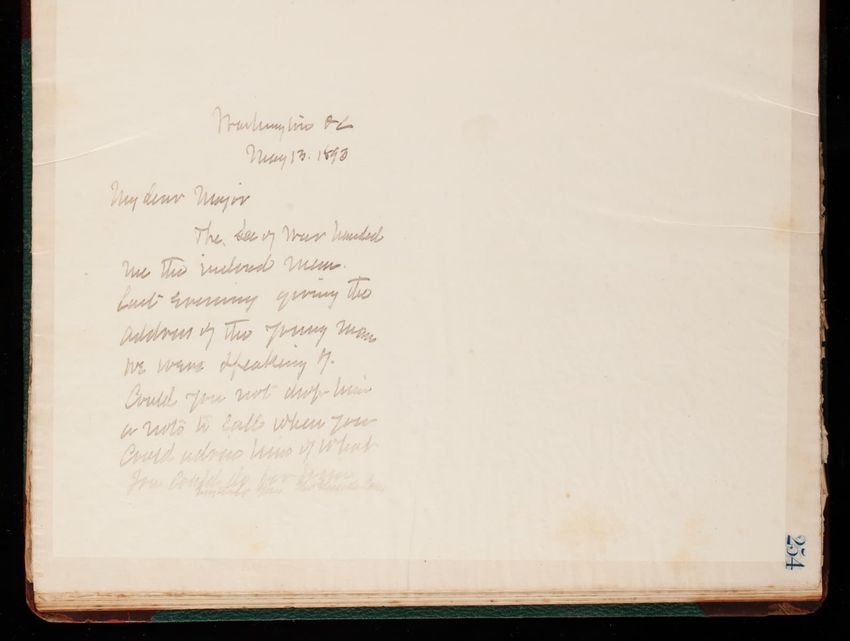 Washington DC
May 13. 1893
My dear Major
The Sec of War handed
me the inclosed mem.
last evening giving the
address of the young man
we were speaking of.
Could you not drop him
a note to call when you
could advise him of what
you could do for him
254